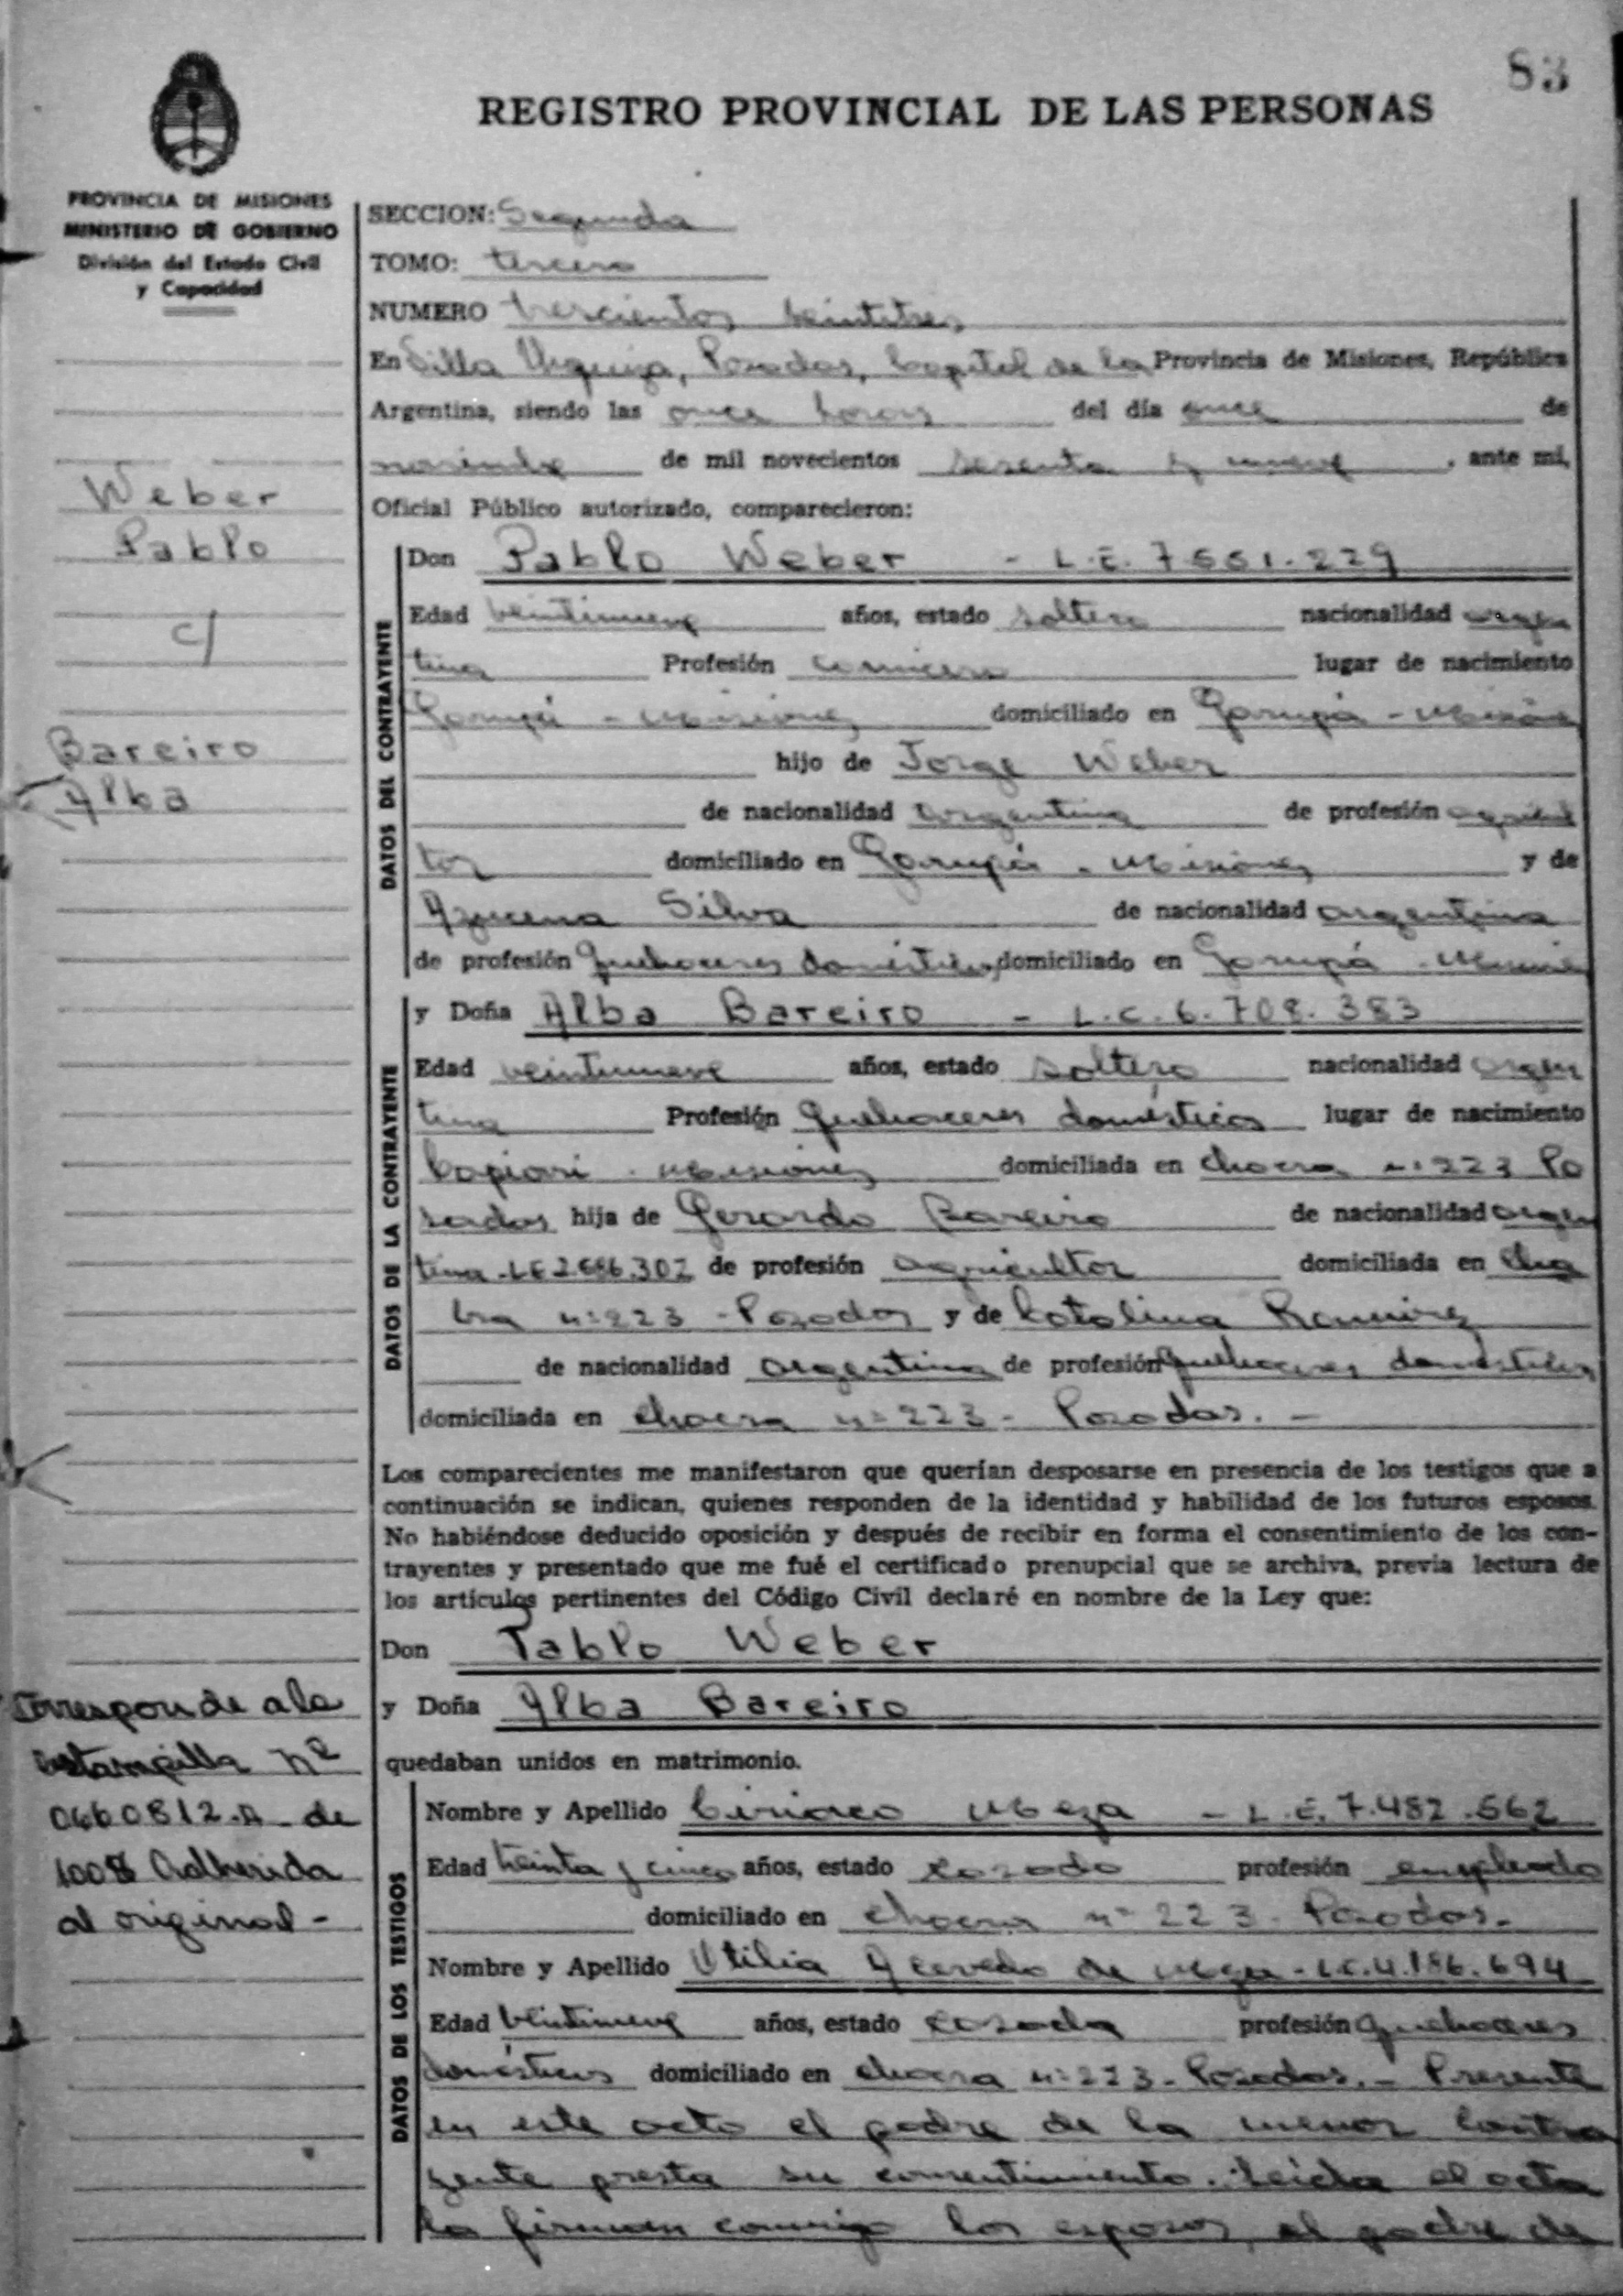 83
REGISTRO PROVINCIAL DE LAS PERSONAS
PROVINCIA DE MISIONES
MINISTERIO DE GOBIERNO
División del Estado Civil
y Capacidad
SECCION: Segunda
TOMO: tercero
NUMERO trescientos veintitres
En Villa Urquiza, Posadas, Capital de la Provincia de Misiones, República
Argentina, siendo las once horas del día once de
noviembre de mil novecientos sesenta y nueve, ante mí,
Oficial Público autorizado, comparecieron:
Weber
Pablo
c/
Bareiro
Alba
DATOS DEL CONTRAYENTE
Don Pablo Weber - L.E. 7.551.229
Edad veintinueve años, estado soltero nacionalidad argen
tina Profesión lugar de nacimiento
Garupá - Misiones domiciliado en Garupá - Misiones
hijo de Jorge Weber
de nacionalidad argentina de profesión agricul
tor domiciliado en Garupá - Misiones y de
Azucena Silva de nacionalidad argentina
de profesión quehaceres domésticos domiciliado en Garupá - Misiones
DATOS DE LA CONTRAYENTE
y Doña Alba Bareiro - L.C. 6.708.383
Edad veintinueve años, estado soltera nacionalidad argen
tina Profesión quehaceres domésticos lugar de nacimiento
Capiovi - Misiones domiciliada en chacra n: 223 Po
sadas hija de Gerardo Bareiro de nacionalidad argen
tina - LE 2.686.302 de profesión agricultor domiciliada en cha
cra n: 223 - Posadas y de Catalina Ramirez
de nacionalidad argentina de profesión quehaceres domésticos
domiciliada en chacra n: 223 - Posadas. -
Los comparecientes me manifestaron que querían desposarse en presencia de los testigos que a
continuación se indican, quienes responden de la identidad y habilidad de los futuros esposos.
No habiéndose deducido oposición y después de recibir en forma el consentimiento de los con-
trayentes y presentado que me fué el certificado prenupcial que se archiva, previa lectura de
los artículos pertinentes del Código Civil declaré en nombre de la Ley que:
Don Pablo Weber
y Doña Alba Bareiro
quedaban unidos en matrimonio.
Corresponde a la
estampilla nº
0660812-A - de
100$ Adherida
al original -
DATOS DE LOS TESTIGOS
Nombre y Apellido Ciriaco Meza - L.E. 7.482.562
Edad treinta y cinco años, estado casado profesión empleado
domiciliado en chacra nº 223 - Posadas.
Nombre y Apellido Utilia Acevedo de Meza - LC. 4.186.694
Edad veintinueve años, estado casada profesión quehaceres
domésticos domiciliado en chacra n: 223 - Posadas. - Presente
en este acto el padre de la menor contra
yente presta su consentimiento. Leida el acta
la firman conmigo los esposos, el padre de